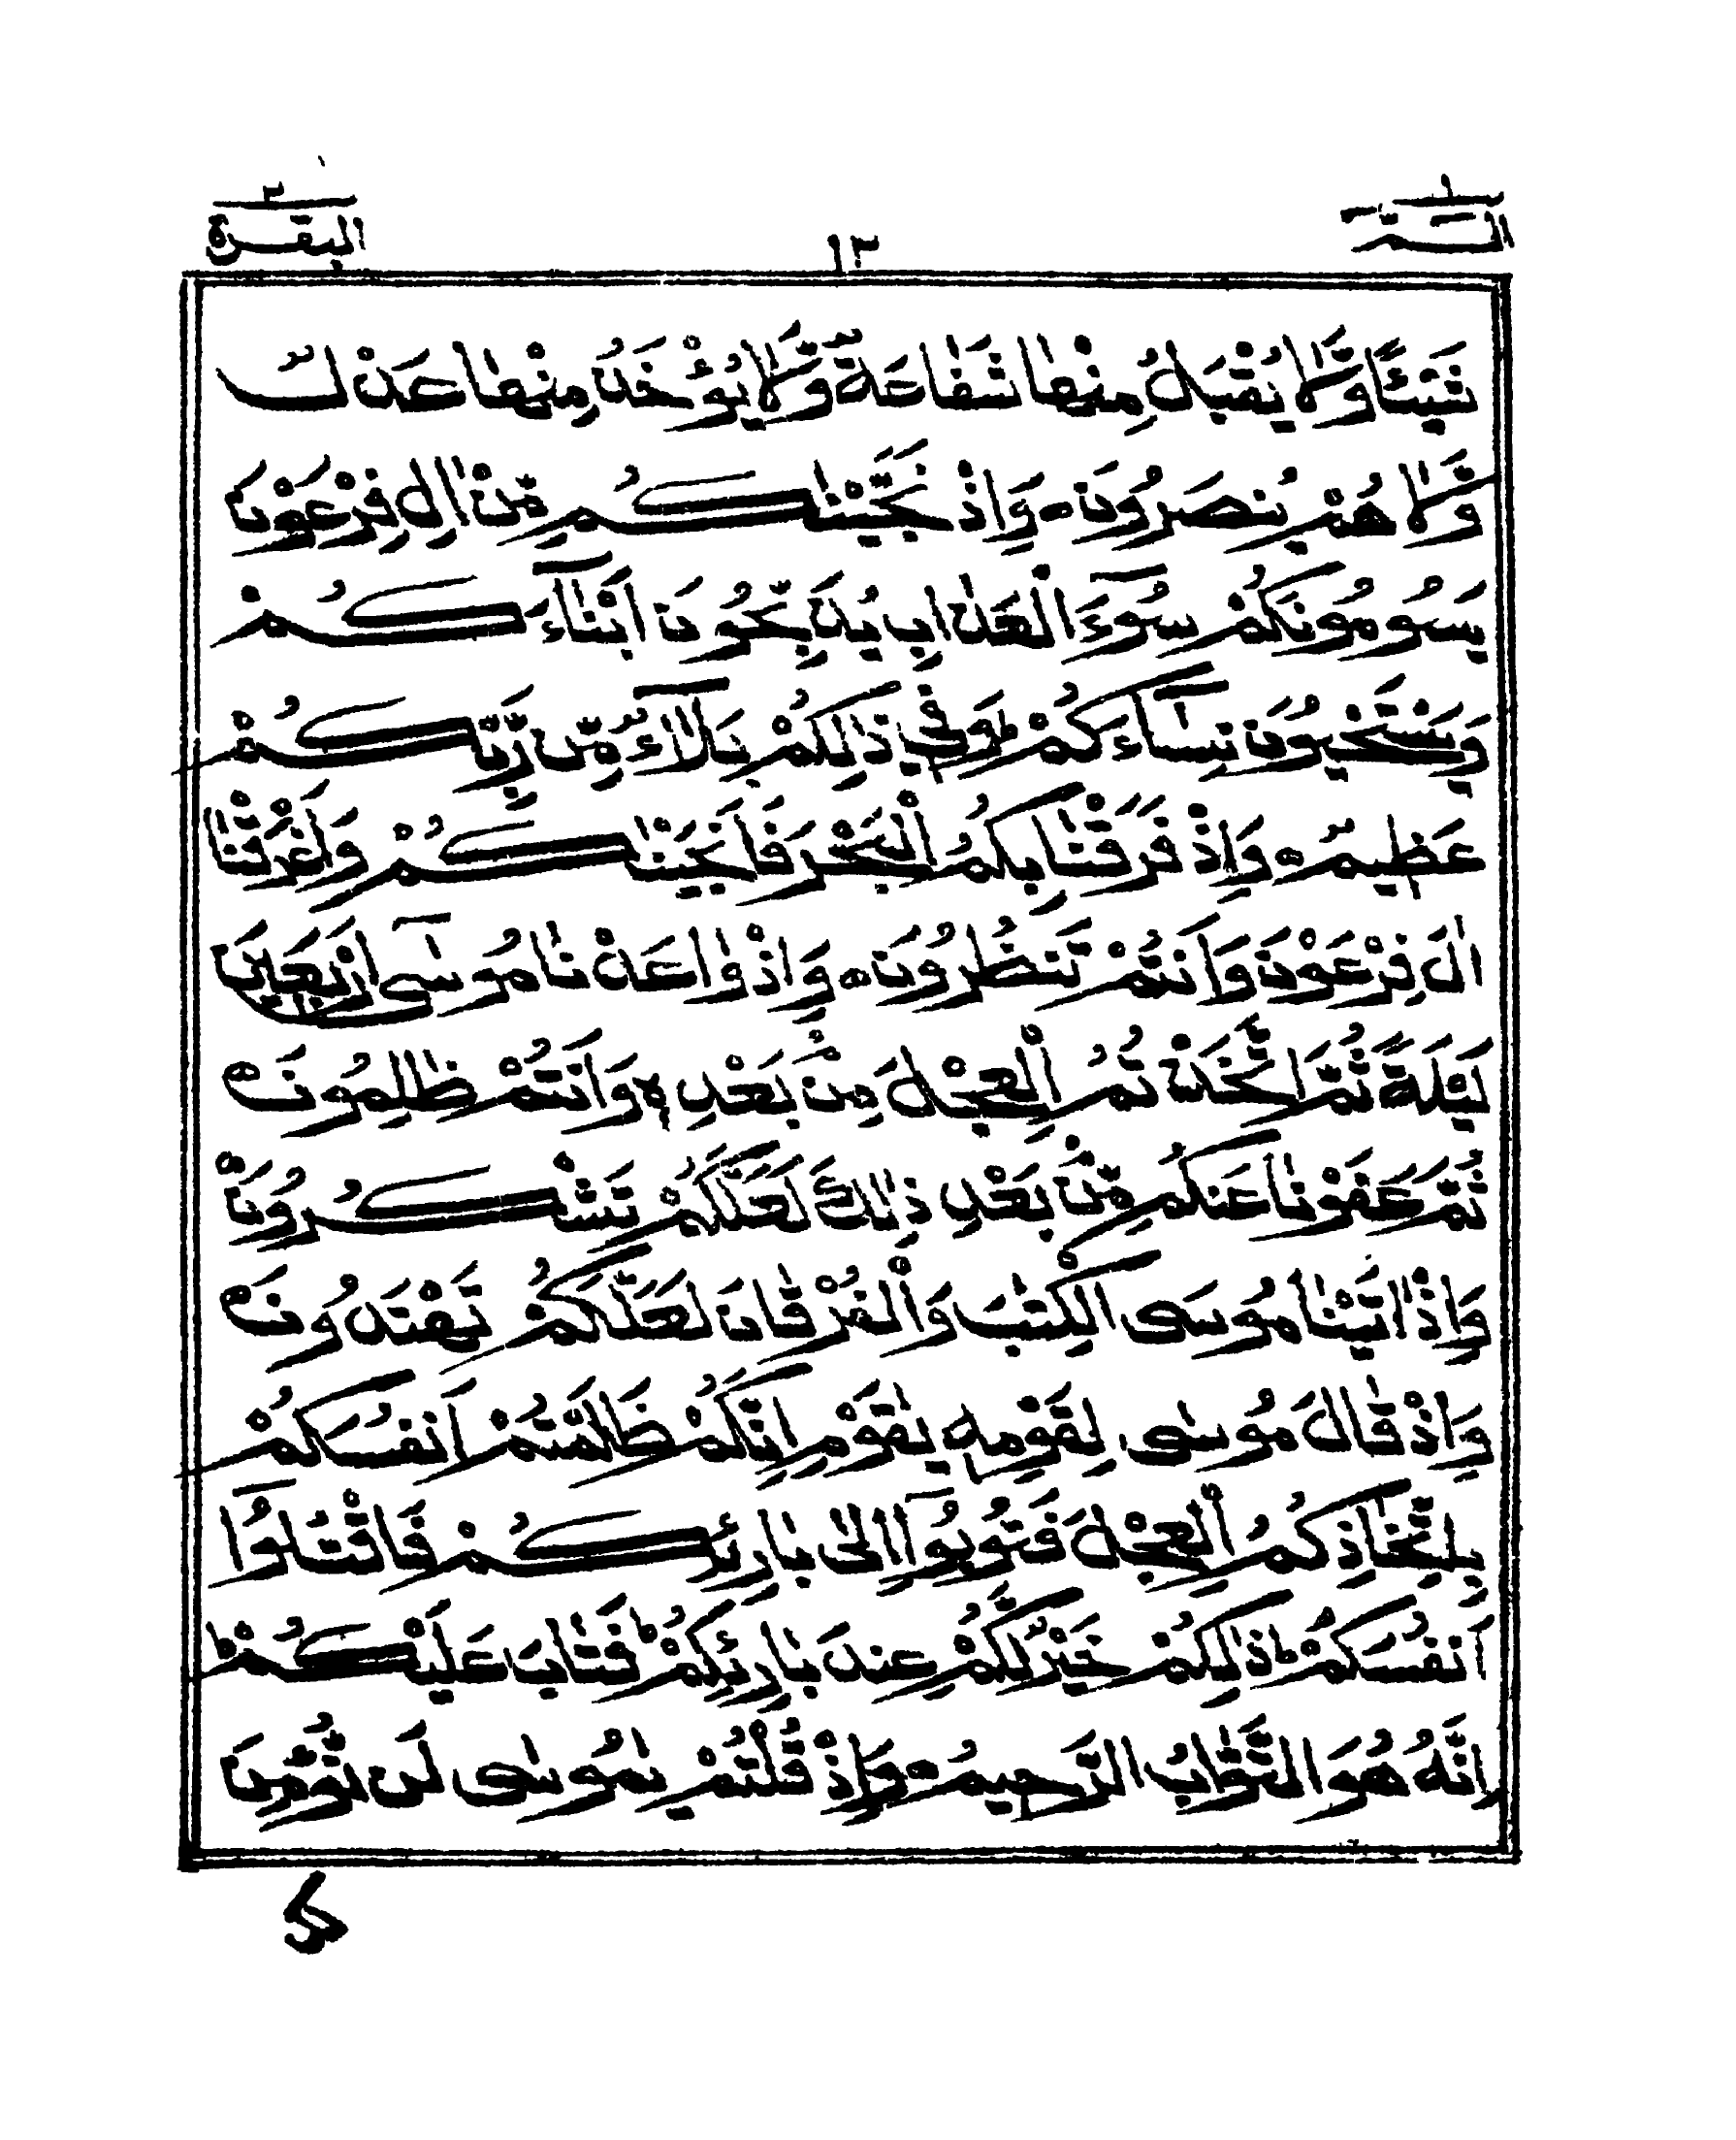 الٓمّٓ ١
١٣
البقرة ٢
شَيْئًا وَّلَا يُقْبَلُ مِنْهَا شَفَاعَةٌ وَّلَا يُؤْخَذُ مِنْهَا عَدْلٌ
وَّلَا هُمْ يُنصَرُوْنَ ۝ وَاِذْ نَجَّيْنٰكُمْ مِّنْ اٰلِ فِرْعَوْنَ
يَسُوْمُوْنَكُمْ سُوْٓءَ الْعَذَابِ يُذَبِّحُوْنَ اَبْنَآءَكُمْ
وَيَسْتَحْيُوْنَ نِسَآءَكُمْ ؕ وَفِيْ ذٰلِكُمْ بَلَآءٌ مِّنْ رَّبِّكُمْ
عَظِيْمٌ ۝ وَاِذْ فَرَقْنَا بِكُمُ الْبَحْرَ فَاَنْجَيْنٰكُمْ وَاَغْرَقْنَا
اٰلَ فِرْعَوْنَ وَاَنتُمْ تَنظُرُوْنَ ۝ وَاِذْ وٰعَدْنَا مُوْسٰٓى اَرْبَعِيْنَ
لَيْلَةً ثُمَّ اتَّخَذْتُمُ الْعِجْلَ مِنْۢ بَعْدِهٖ وَاَنتُمْ ظٰلِمُوْنَ ۝
ثُمَّ عَفَوْنَا عَنكُمْ مِّنْۢ بَعْدِ ذٰلِكَ لَعَلَّكُمْ تَشْكُرُوْنَ ۝
وَاِذْ اٰتَيْنَا مُوْسَى الْكِتٰبَ وَالْفُرْقَانَ لَعَلَّكُمْ تَهْتَدُوْنَ ۝
وَاِذْ قَالَ مُوْسٰى لِقَوْمِهٖ يٰقَوْمِ اِنَّكُمْ ظَلَمْتُمْ اَنفُسَكُمْ
بِاتِّخَاذِكُمُ الْعِجْلَ فَتُوْبُوْٓا اِلٰى بَارِئِكُمْ فَاقْتُلُوْٓا
اَنفُسَكُمْ ؕ ذٰلِكُمْ خَيْرٌ لَّكُمْ عِندَ بَارِئِكُمْ ؕ فَتَابَ عَلَيْكُمْ ؕ
اِنَّهٗ هُوَ التَّوَّابُ الرَّحِيْمُ ۝ وَاِذْ قُلْتُمْ يٰمُوْسٰى لَن نُّؤْمِنَ